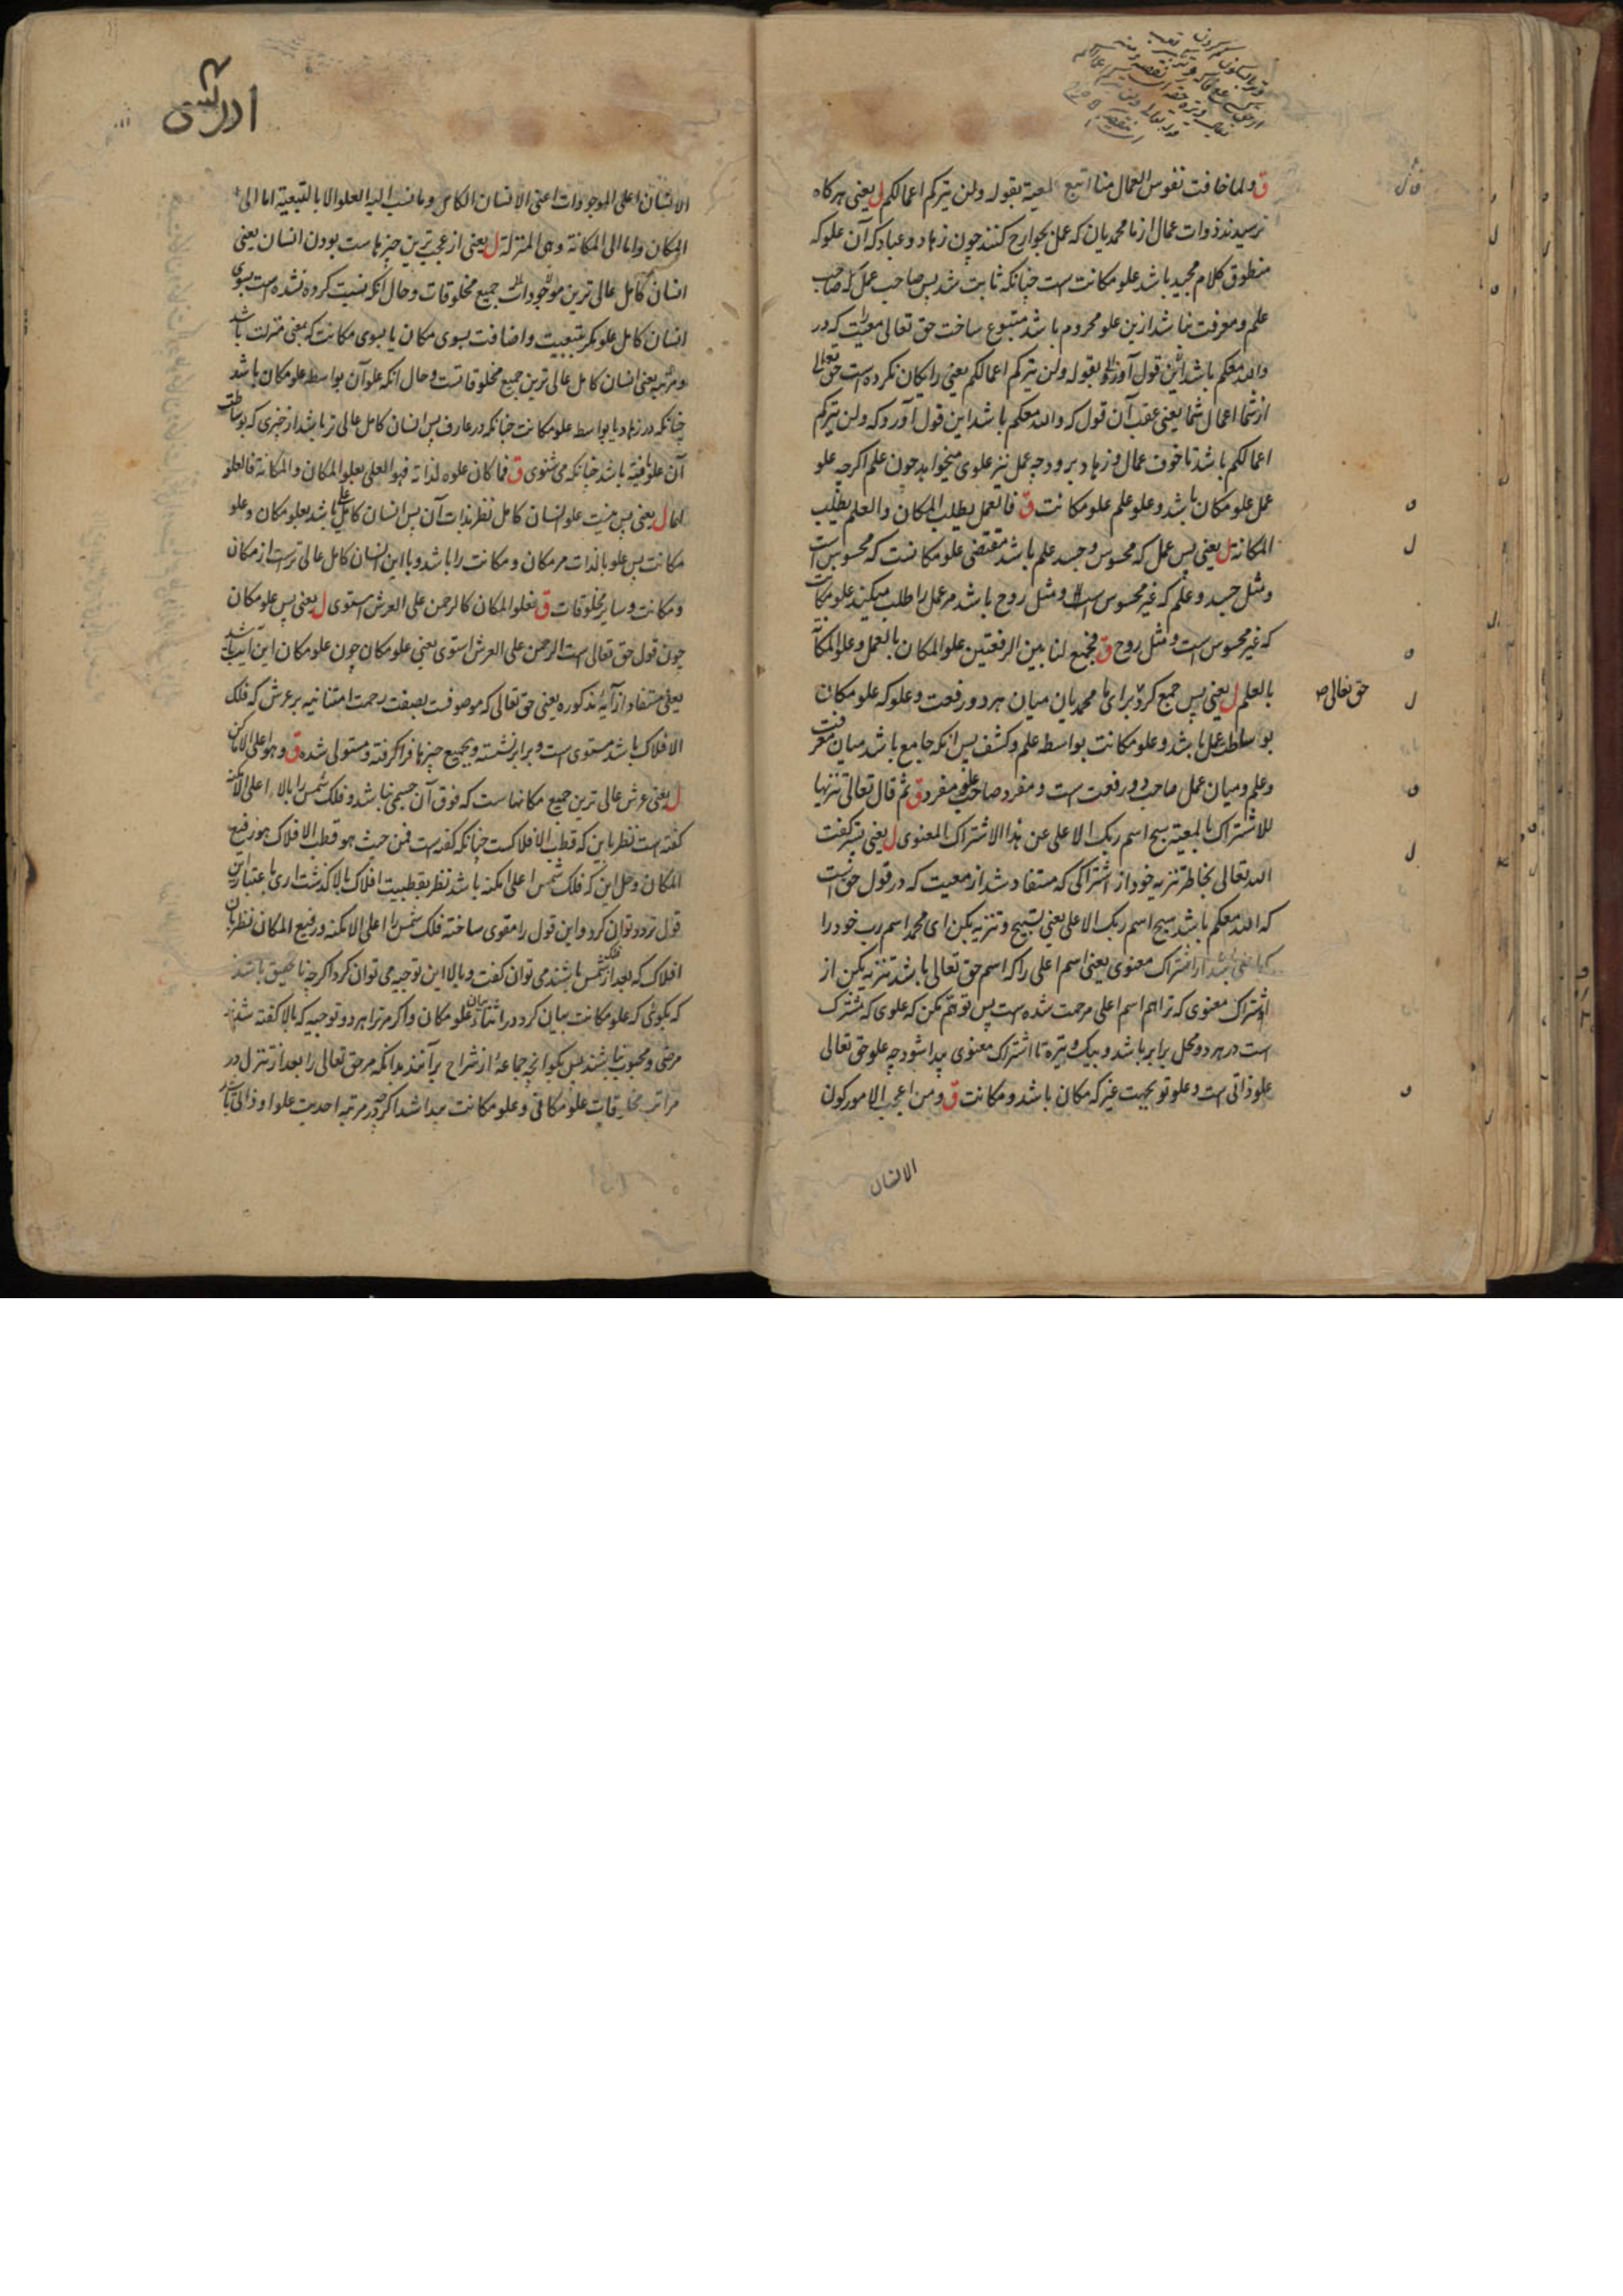 ق ولما خافت نفوس العمال منا اتبع المعية بقوله ولن یترکم اعمالکم ل یعنی هرکاه
ترسیدند ذوات عمال از ما محمدیان که عمل بجوارح کنند چون زهاد و عباد که آن علو که
منطوق کلام مجید باشد علو مکانت است چنانکه ثابت شد پس صاحب عمل که صاحب
علم و معرفت نباشد ازین علو محروم باشد متبوع ساخت حق تعالی معیت را که در
والله معکم باشد این قول آورد و بقوله ولن یترکم اعمالکم یعنی رایکان نکرده است حق تعالی
از شما اعمال شما یعنی عقب آن قول که والله معکم باشد این قول آورد که ولن یترکم
اعمالکم باشد تا خوف عمال و زهاد برود چه عمل نیز علوی میخواهد چون علم اکرچه علو
عمل علو مکان باشد و علو علم علو مکانت ق فالعمل یطلب المکان والعلم یطلب
المکانة ل یعنی پس عمل که محسوس و جسد علم باشد مقتضی علو مکانت که محسوس است
و مثل جسد و علم که غیر محسوس است و مثل روح باشد مر عمل را طلب میکند علو مکانت
که غیر محسوس است و مثل روح ق فجمع لنا بین الرفعتین علو المکان بالعمل و علو المکانة
بالعلم ل یعنی پس جمع کرد برای ما محمدیان میان هر دو رفعت و علو که علو مکان
حق تعالی ص
بوساطت عمل باشد و علو مکانت بواسطه علم و کشف پس آنکه جامع باشد میان معرفت
و علم و میان عمل صاحب دو رفعت است و مفرد صاحب علو مفرد ق ثم قال تعالی تنزیها
للاشتراک بالمعیة سبح اسم ربک الاعلی عن هذا الاشتراک المعنوی ل یعنی پس کفت
الله تعالی بخاطر تنزیه خود از اشتراکی که مستفاد شد از معیت که در قول حق است
که الله معکم باشد سبح اسم ربک الاعلی یعنی تسبیح و تنزیه بکن ای محمد اسم رب خود را
که اعلی باشد از اشتراک معنوی یعنی اسم اعلی را که اسم حق تعالی باشد تنزیه بکن از
اشتراک معنوی که ترا هم اسم اعلی مرحمت شده است پس توهم مکن که علوی که مشترک
است در هر دو محل برابر باشد و بیک وتیره تا اشتراک معنوی پیدا شود چه علو حق تعالی
علو ذاتی است و علو تو بجهت غیر که مکان باشد و مکانت ق و من اعجب الامور کون
الانسان
ادریسی
الانسان اعلی الموجودات اعنی الانسان الکامل وما نسب الیه العلو الا بالتبعیة اما الی
المکان واما الی المکانة وهی المنزلة ل یعنی از عجب ترین چیزها ست بودن انسان یعنی
انسان کامل عالی ترین موجودات جمیع مخلوقات و حال آنکه نسبت کرده نشده است بسوی
انسان کامل علو مکر بتبعیت و اضافت بسوی مکان یا بسوی مکانت که بمعنی منزلت باشد
و مرتبه یعنی انسان کامل عالی ترین جمیع مخلوقاتست و حال آنکه علو آن بواسطه علو مکان باشد
چنانکه در زهاد یا بواسطه علو مکانت چنانکه در عارف پس انسان کامل عالی تر باشد از چیزی که بوساطت
آن علو یافته باشد چنانکه می شنوی ق فما کان علوه لذاته فهو العلی بعلو المکان والمکانة فالعلو
لهما ل یعنی پس نیست علو انسان کامل نظر بذات آن پس انسان کامل عالی باشد بعلو مکان و علو
مکانت پس علو بالذات مر مکان و مکانت را باشد و با این انسان کامل عالی تر است از مکان
و مکانت و سایر مخلوقات ق فعلو المکان کالرحمن علی العرش استوی ل یعنی پس علو مکان
چون قول حق تعالی است الرحمن علی العرش استوی یعنی علو مکان چون علو مکان این آیت باشد
یعنی مستفاد از آیه مذکوره یعنی حق تعالی که موصوفست بصفت رحمت امتنانیه بر عرش که فلک
الافلاک باشد مستوی است و برابر نشسته و بجمیع چیزها فرا کرفته و مستولی شده ق وهو اعلی الاماکن
ل یعنی عرش عالی ترین جمیع مکانها ست که فوق آن جسمی نباشد و فلک شمس را بالا اعلی الامکنه
کفته است نظر باین که قطب الافلاکست چنانکه کفته است فمن حیث هو قطب الافلاک هو رفیع
المکان و حل این که فلک شمس اعلی امکنه باشد نظر بقطبیت افلاک بالا کذشت اری باعتبار این
قول تردد توان کرد و این قول را مقوی ساخته فلک شمس را اعلی الامکنه و رفیع المکان نظر بان
افلاک که بعد از فلک شمس باشند می توان کفت و بالا این توجیه می توان کرد اکرچه نا تحقیق باشد
که بکوئی که علو مکانت بیان کرد در اثناء بیان علو مکان و اکر مر ترا هر دو توجیه که بالا کفته شد
مرضی و محبوب نباشند پس بکو انچه جماعهٔ از شراح برآنند بدانکه مر حق تعالی را بعد از تنزل در
مراتب مخلوقات علو مکانی و علو مکانت پیدا شد اکرچه در مرتبه احدیت علو او ذاتی باشد